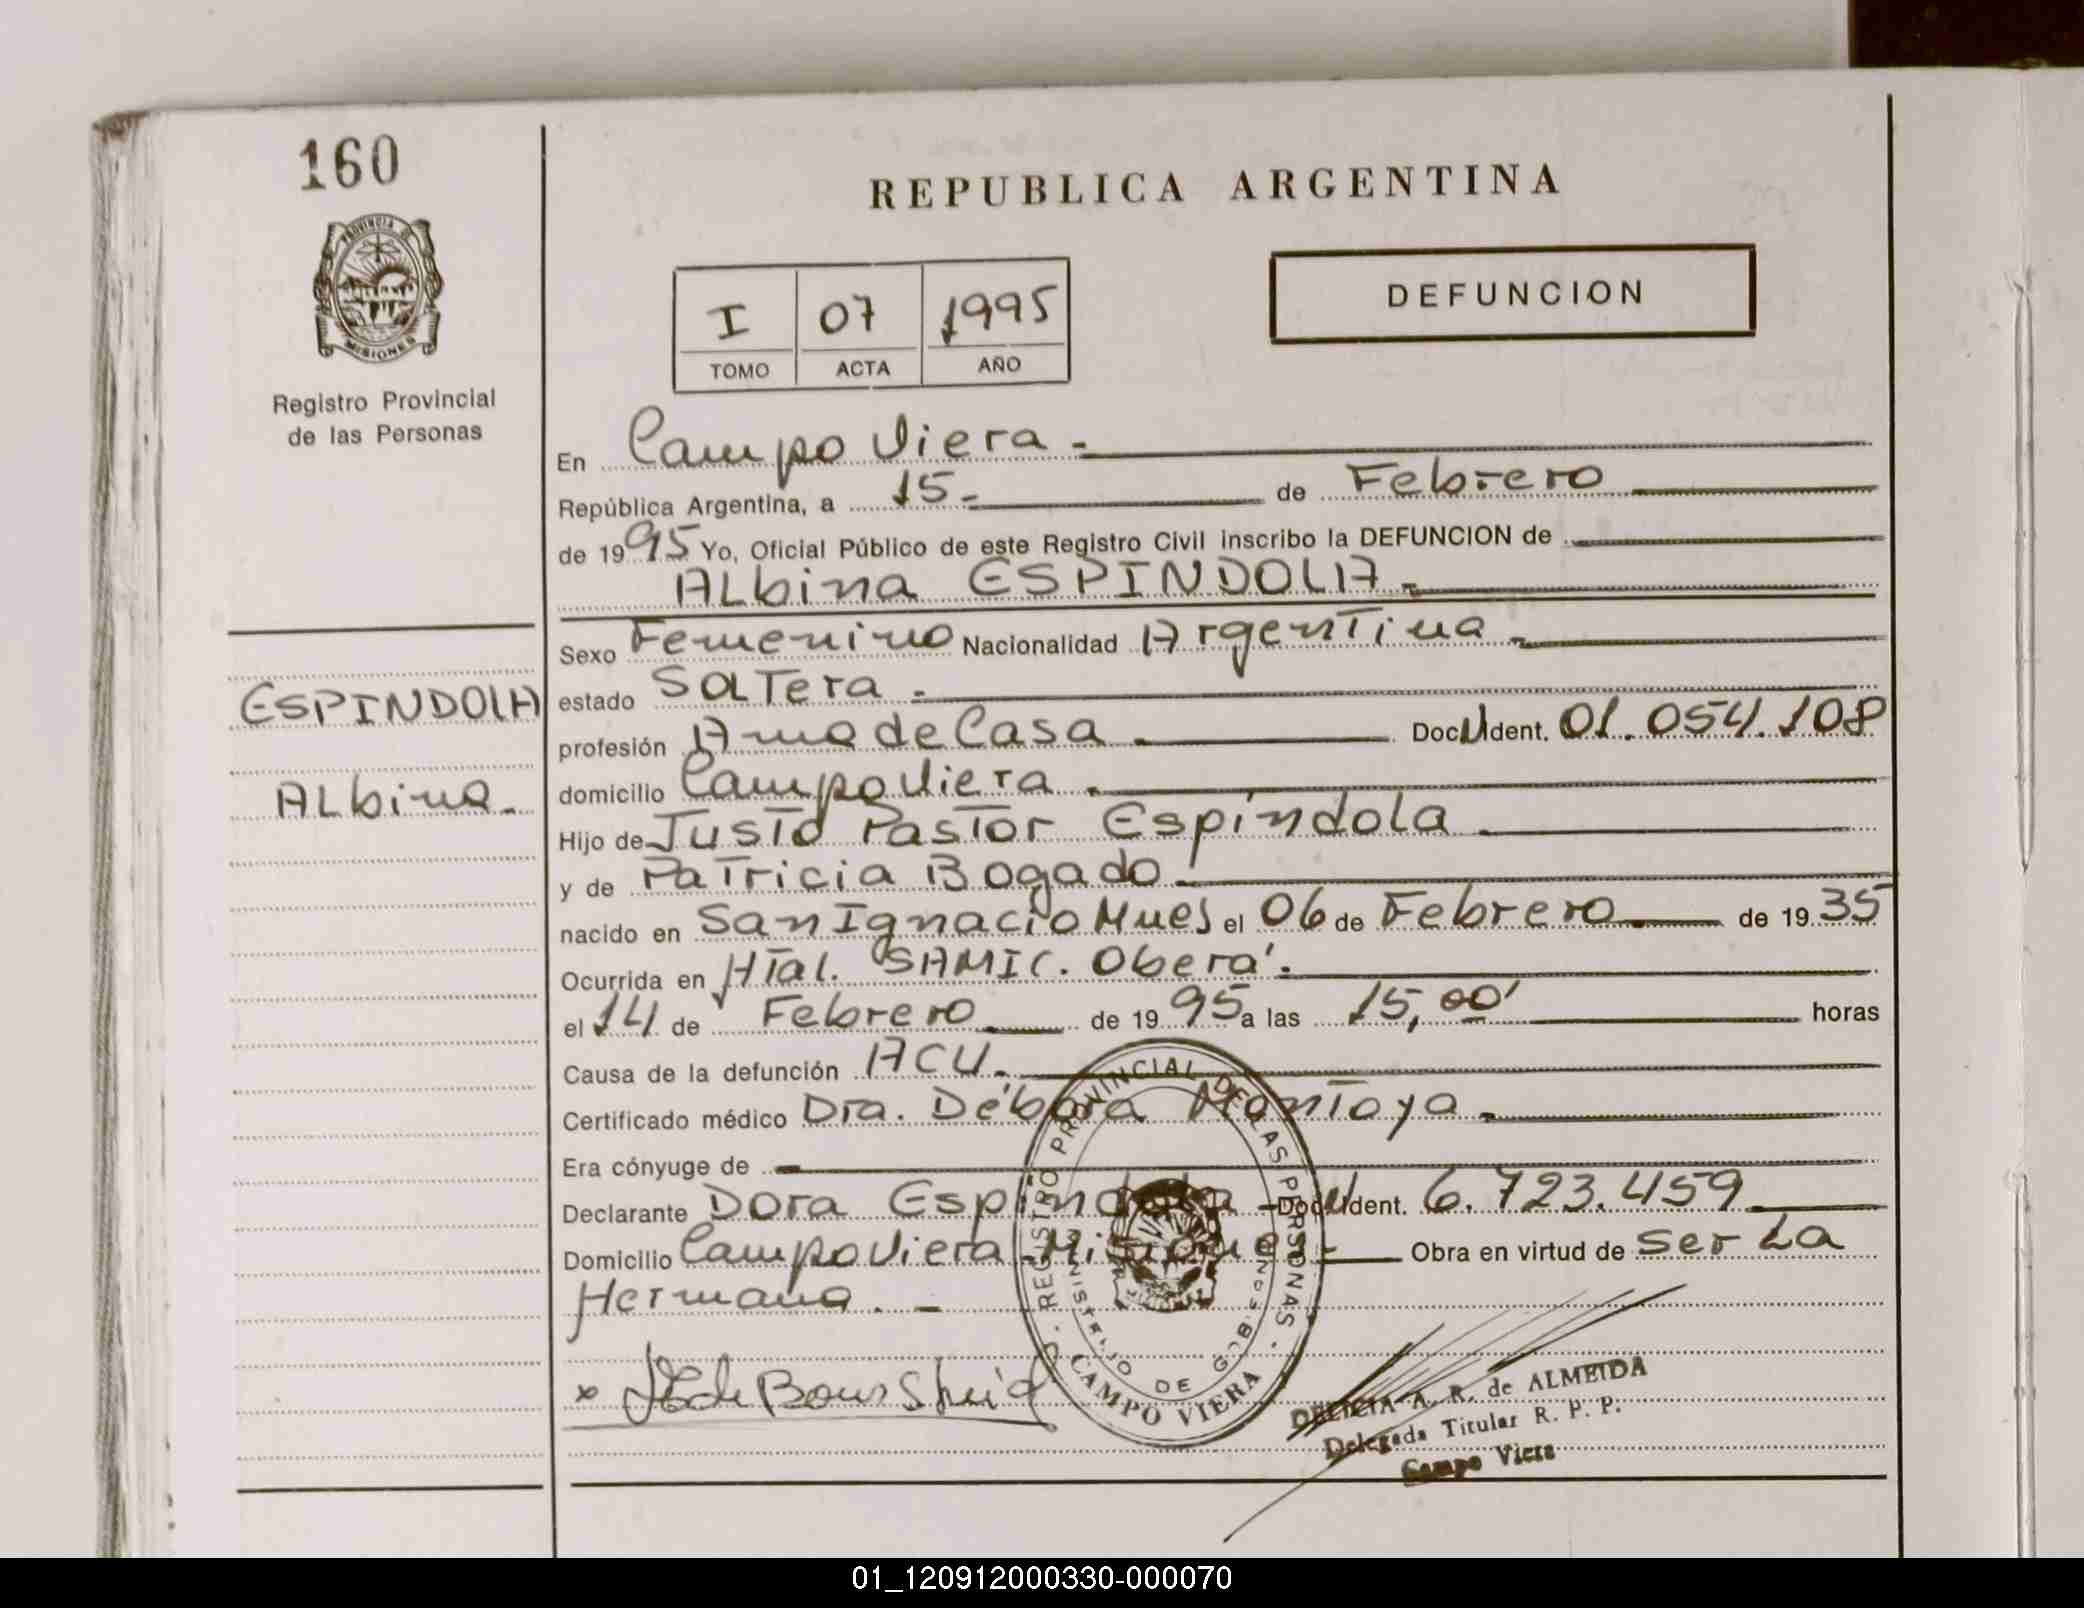 160
PROVINCIA DE
MISIONES
Registro Provincial
de las Personas
ESPINDOLA
ALbina.-
REPUBLICA ARGENTINA
I 07 1995
TOMO ACTA AÑO
DEFUNCION
En Campo Viera.-
República Argentina, a 15.- de Febrero
de 1995 Yo, Oficial Público de este Registro Civil inscribo la DEFUNCION de
ALbina ESPINDOLA.-
Sexo Femenino Nacionalidad Argentina.-
estado SolTera.-
profesión Ama de Casa.- Doc U Ident. 01.054.108
domicilio Campo Viera.-
Hijo de JusTo PasTor Espíndola.-
y de PaTricia Bogado.-
nacido en San Ignacio Mnes el 06 de Febrero de 1935
Ocurrida en HTal. SAMIC. Oberá.-
el 14 de Febrero de 1995 a las 15,00' horas
Causa de la defunción ACV.-
Certificado médico Dra. Débora MonToya.-
Era cónyuge de -
Declarante Dora Espíndola - Doc U Ident. 6.723.459
Domicilio Campo Viera Misiones.- Obra en virtud de ser La
Hermana.-
x
REGISTRO PROVINCIAL DE LAS PERSONAS
MINISTERIO DE GOBIERNO
CAMPO VIERA
DELICIA A. R. de ALMEIDA
Delegada Titular R. P. P.
Campo Viera
01_120912000330-000070